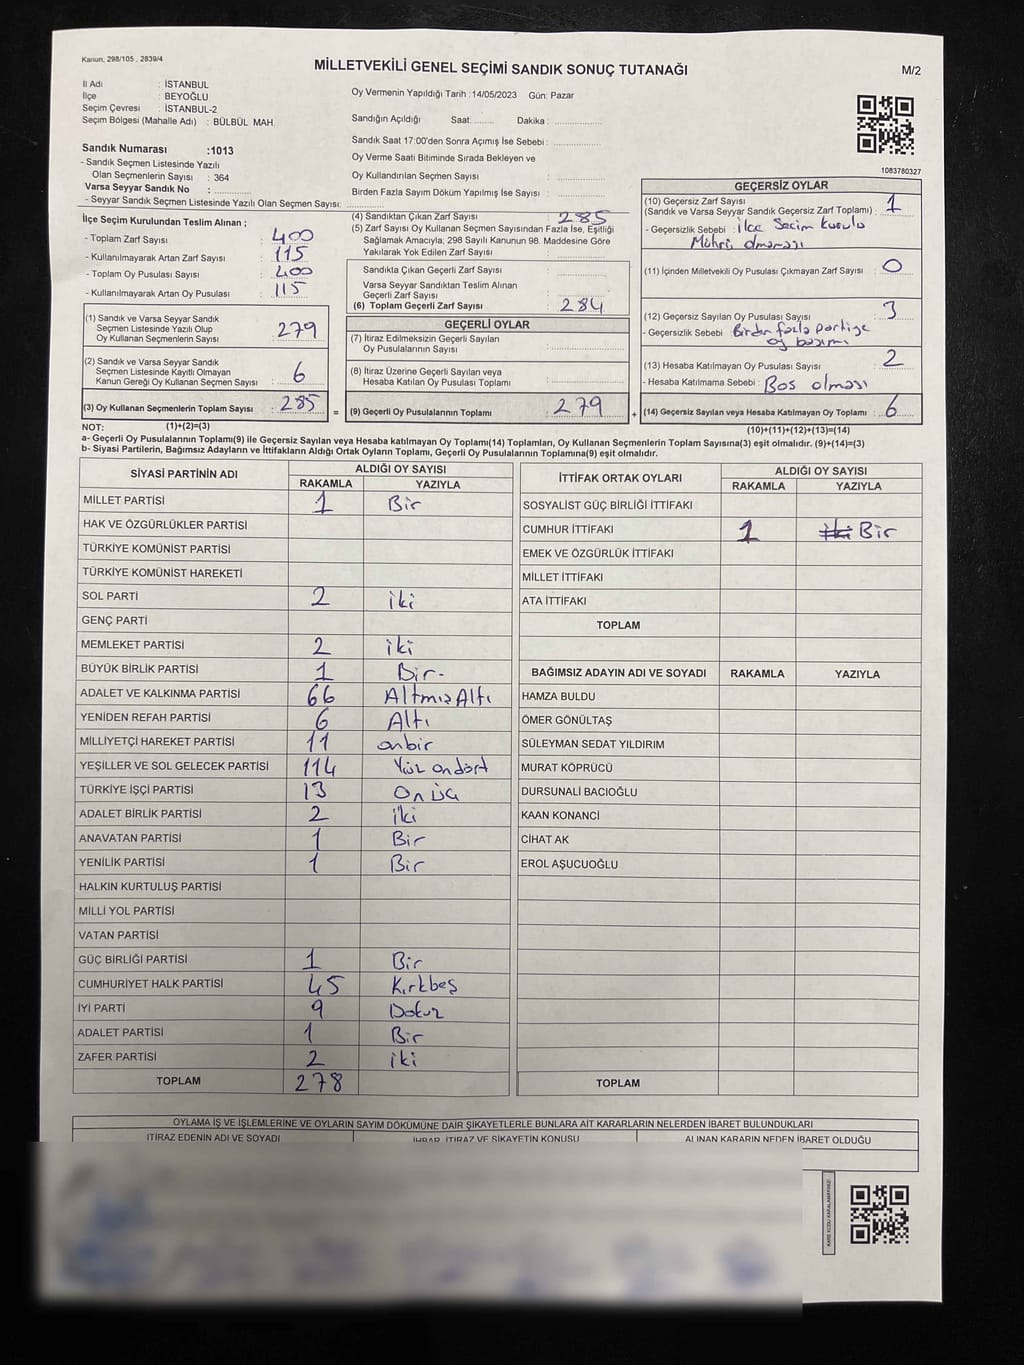 Kanun, 298/105 , 2839/4
MİLLETVEKİLİ GENEL SEÇİMİ SANDIK SONUÇ TUTANAĞI
M/2
İl Adı : İSTANBUL
İlçe : BEYOĞLU
Seçim Çevresi : İSTANBUL-2
Seçim Bölgesi (Mahalle Adı) : BÜLBÜL MAH.
Sandık Numarası :1013
- Sandık Seçmen Listesinde Yazılı
Olan Seçmenlerin Sayısı : 364
Varsa Seyyar Sandık No :
- Seyyar Sandık Seçmen Listesinde Yazılı Olan Seçmen Sayısı:
Oy Vermenin Yapıldığı Tarih :14/05/2023 Gün: Pazar
Sandığın Açıldığı Saat: Dakika :
Sandık Saat 17:00'den Sonra Açımış İse Sebebi :
Oy Verme Saati Bitiminde Sırada Bekleyen ve
Oy Kullandırılan Seçmen Sayısı :
Birden Fazla Sayım Döküm Yapılmış İse Sayısı :
1083780327
İlçe Seçim Kurulundan Teslim Alınan ;
- Toplam Zarf Sayısı : 400
- Kullanılmayarak Artan Zarf Sayısı : 115
- Toplam Oy Pusulası Sayısı : 400
- Kullanılmayarak Artan Oy Pusulası : 115
(1) Sandık ve Varsa Seyyar Sandık
Seçmen Listesinde Yazılı Olup
Oy Kullanan Seçmenlerin Sayısı : 279
(2) Sandık ve Varsa Seyyar Sandık
Seçmen Listesinde Kayıtlı Olmayan
Kanun Gereği Oy Kullanan Seçmen Sayısı : 6
(3) Oy Kullanan Seçmenlerin Toplam Sayısı : 285
(4) Sandıktan Çıkan Zarf Sayısı : 285
(5) Zarf Sayısı Oy Kullanan Seçmen Sayısından Fazla İse, Eşitliği
Sağlamak Amacıyla; 298 Sayılı Kanunun 98. Maddesine Göre
Yakılarak Yok Edilen Zarf Sayısı :
Sandıkta Çıkan Geçerli Zarf Sayısı :
Varsa Seyyar Sandıktan Teslim Alınan
Geçerli Zarf Sayısı :
(6) Toplam Geçerli Zarf Sayısı : 284
GEÇERLİ OYLAR
(7) İtiraz Edilmeksizin Geçerli Sayılan
Oy Pusulalarının Sayısı :
(8) İtiraz Üzerine Geçerli Sayılan veya
Hesaba Katılan Oy Pusulası Toplamı :
= (9) Geçerli Oy Pusulalarının Toplamı : 279 +
GEÇERSİZ OYLAR
(10) Geçersiz Zarf Sayısı
(Sandık ve Varsa Seyyar Sandık Geçersiz Zarf Toplamı) : 1
- Geçersizlik Sebebi : İlçe Seçim Kurulu
Mührü olmaması
(11) İçinden Milletvekili Oy Pusulası Çıkmayan Zarf Sayısı : 0
(12) Geçersiz Sayılan Oy Pusulası Sayısı : 3
- Geçersizlik Sebebi : Birden fazla partiye
oy basımı
(13) Hesaba Katılmayan Oy Pusulası Sayısı : 2
- Hesaba Katılmama Sebebi : Boş olması
(14) Geçersiz Sayılan veya Hesaba Katılmayan Oy Toplamı : 6
NOT: (1)+(2)=(3) (10)+(11)+(12)+(13)=(14)
a- Geçerli Oy Pusulalarının Toplamı(9) ile Geçersiz Sayılan veya Hesaba katılmayan Oy Toplamı(14) Toplamları, Oy Kullanan Seçmenlerin Toplam Sayısına(3) eşit olmalıdır. (9)+(14)=(3)
b- Siyasi Partilerin, Bağımsız Adayların ve İttifakların Aldığı Ortak Oyların Toplamı, Geçerli Oy Pusulalarının Toplamına(9) eşit olmalıdır.
SİYASİ PARTİNİN ADI ALDIĞI OY SAYISI
RAKAMLA YAZIYLA
MİLLET PARTİSİ 1 Bir
HAK VE ÖZGÜRLÜKLER PARTİSİ
TÜRKİYE KOMÜNİST PARTİSİ
TÜRKİYE KOMÜNİST HAREKETİ
SOL PARTİ 2 iki
GENÇ PARTİ
MEMLEKET PARTİSİ 2 iki
BÜYÜK BİRLİK PARTİSİ 1 Bir-
ADALET VE KALKINMA PARTİSİ 66 AltmışAltı
YENİDEN REFAH PARTİSİ 6 Altı
MİLLİYETÇİ HAREKET PARTİSİ 11 onbir
YEŞİLLER VE SOL GELECEK PARTİSİ 114 Yüz ondört
TÜRKİYE İŞÇİ PARTİSİ 13 Onüç
ADALET BİRLİK PARTİSİ 2 iki
ANAVATAN PARTİSİ 1 Bir
YENİLİK PARTİSİ 1 Bir
HALKIN KURTULUŞ PARTİSİ
MİLLİ YOL PARTİSİ
VATAN PARTİSİ
GÜÇ BİRLİĞİ PARTİSİ 1 Bir
CUMHURİYET HALK PARTİSİ 45 Kırkbeş
İYİ PARTİ 9 Dokuz
ADALET PARTİSİ 1 Bir
ZAFER PARTİSİ 2 iki
TOPLAM 278
İTTİFAK ORTAK OYLARI ALDIĞI OY SAYISI
RAKAMLA YAZIYLA
SOSYALİST GÜÇ BİRLİĞİ İTTİFAKI
CUMHUR İTTİFAKI 1 iki Bir
EMEK VE ÖZGÜRLÜK İTTİFAKI
MİLLET İTTİFAKI
ATA İTTİFAKI
TOPLAM
BAĞIMSIZ ADAYIN ADI VE SOYADI RAKAMLA YAZIYLA
HAMZA BULDU
ÖMER GÖNÜLTAŞ
SÜLEYMAN SEDAT YILDIRIM
MURAT KÖPRÜCÜ
DURSUNALİ BACIOĞLU
KAAN KONANCİ
CİHAT AK
EROL AŞUCUOĞLU
TOPLAM
OYLAMA İŞ VE İŞLEMLERİNE VE OYLARIN SAYIM DÖKÜMÜNE DAİR ŞİKAYETLERLE BUNLARA AİT KARARLARIN NELERDEN İBARET BULUNDUKLARI
İTİRAZ EDENİN ADI VE SOYADI İHBAR, İTİRAZ VE ŞİKAYETİN KONUSU ALINAN KARARIN NEDEN İBARET OLDUĞU